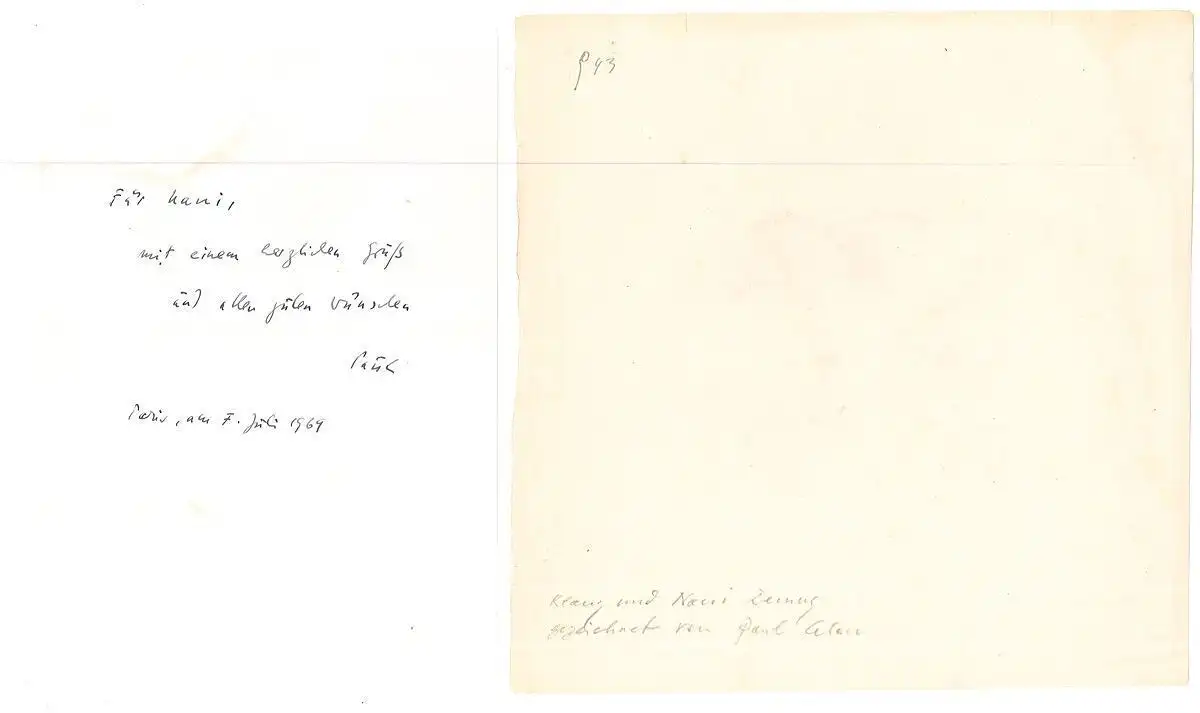 Für Nani,
mit einem herzlichen Gruß
und allen guten Wünschen
Paul
Paris, am 7. Juli 1969
Klaus und Nani Demus
gezeichnet von Paul Celan